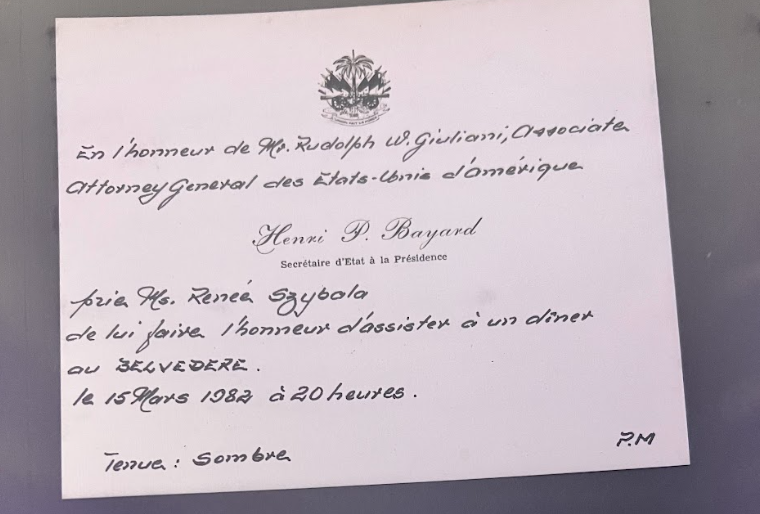 En l'honneur de Mr. Rudolph W. Giuliani, Associate
Attorney General des Etats-Unis d'amérique
Henri P. Bayard
Secrétaire d'Etat à la Présidence
prie Ms. Reneé Szybala
de lui faire l'honneur d'assister à un dîner
au BELVEDERE.
le 15 Mars 1982 à 20 heures.
Tenue : Sombre
P.M